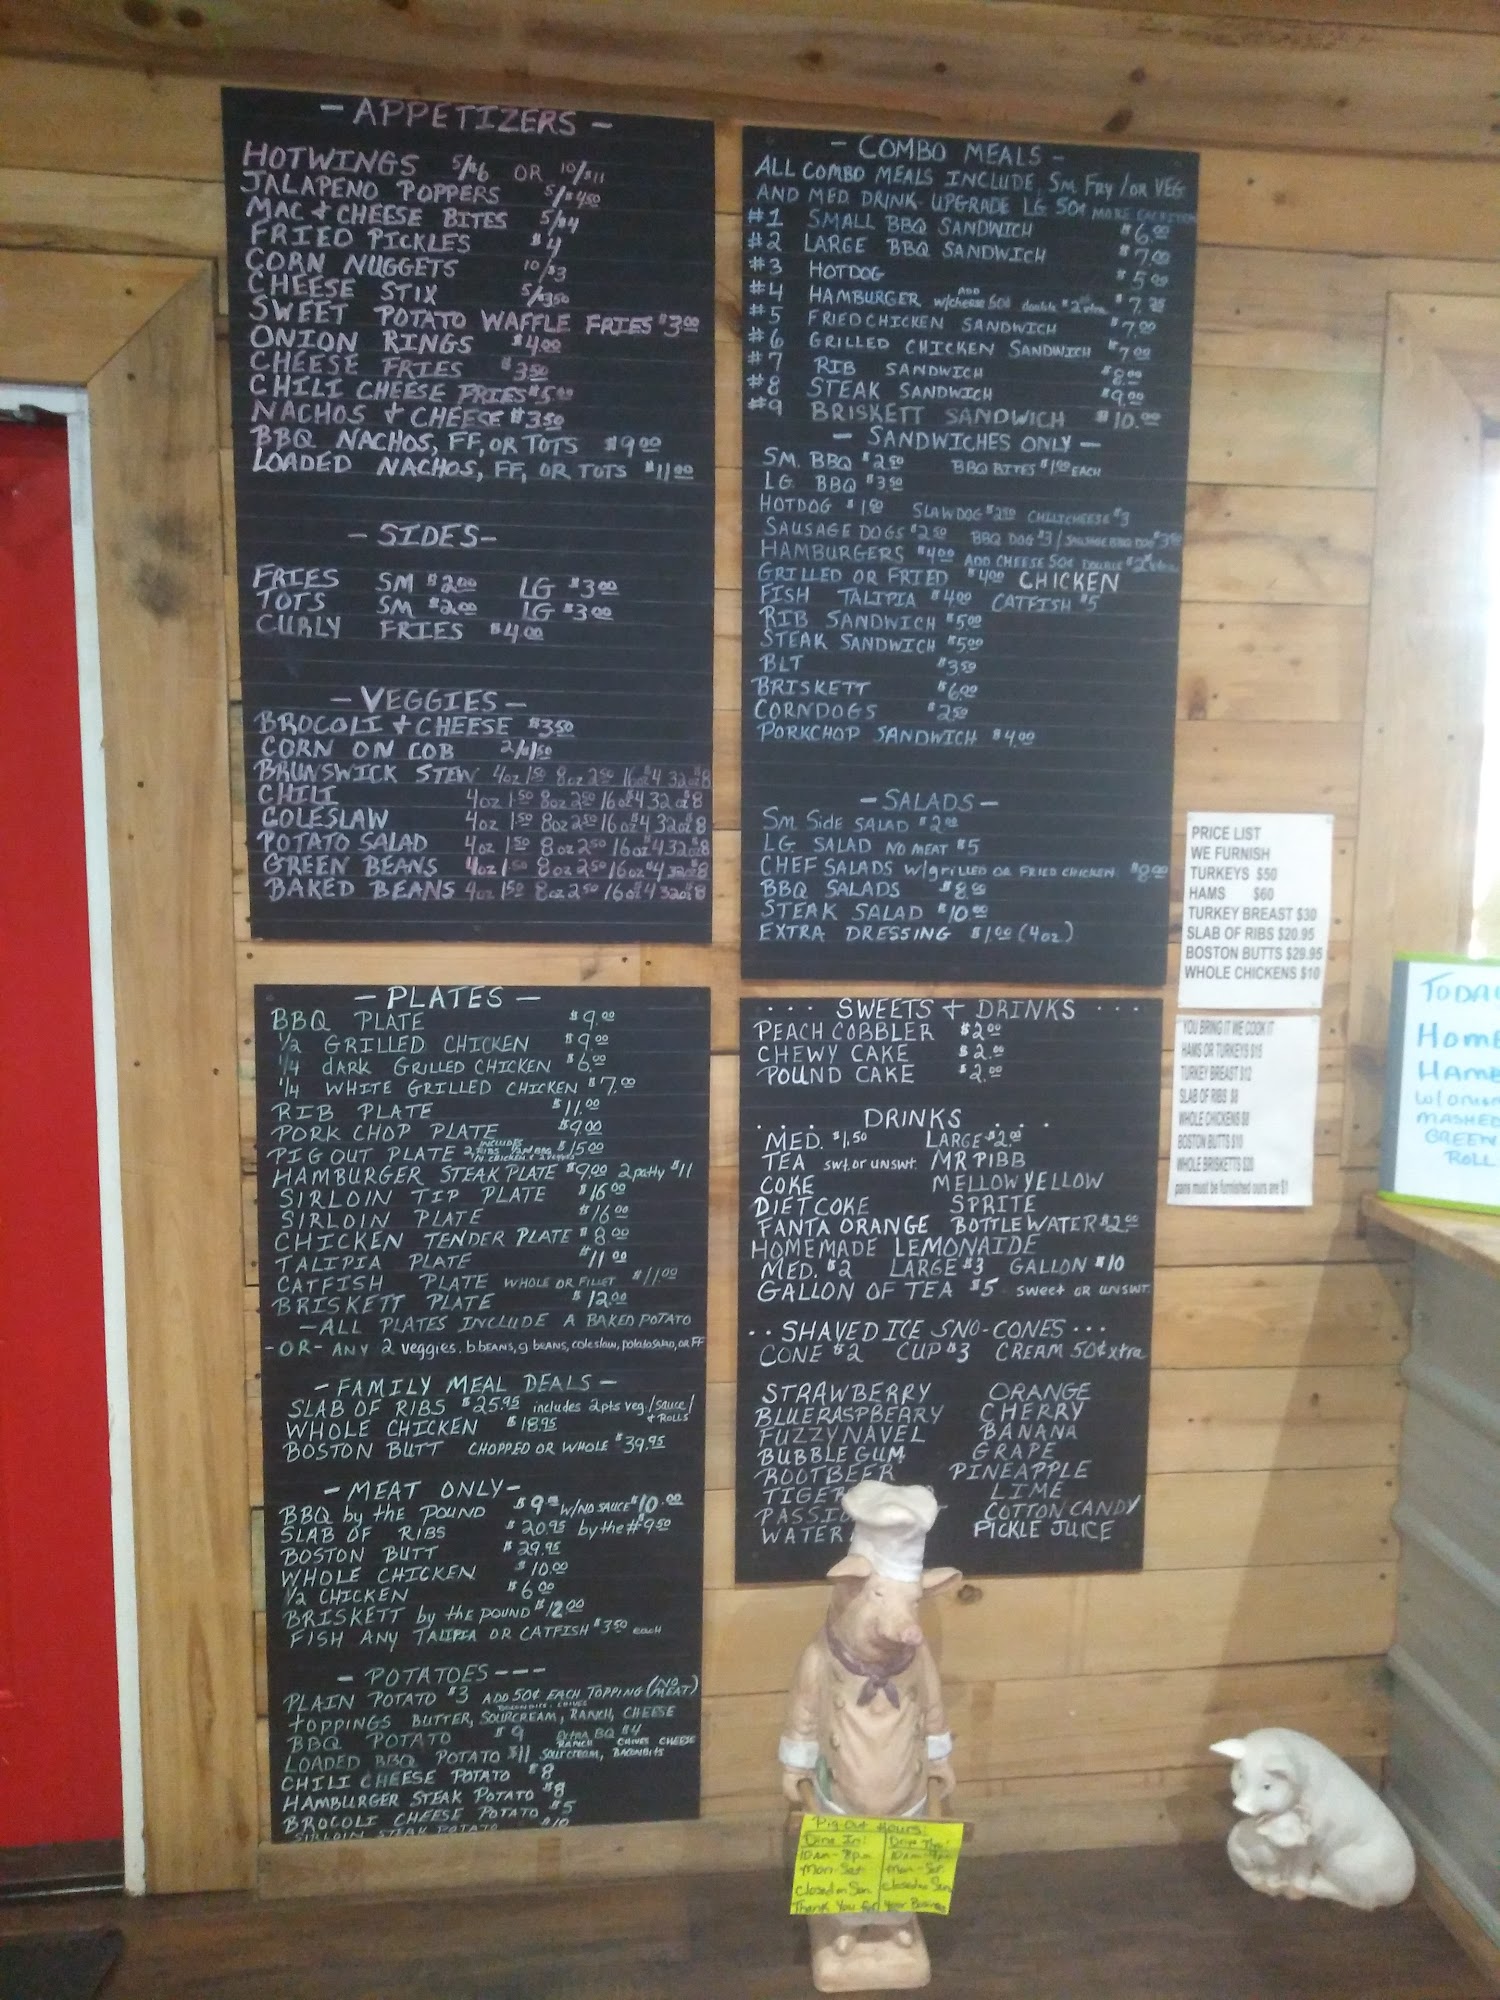 - APPETIZERS -
HOTWINGS 5/$6 OR 10/$11
JALAPENO POPPERS 5/$4.50
MAC & CHEESE BITES 5/$4
FRIED PICKLES $4
CORN NUGGETS 10/$3
CHEESE STIX 5/$3.50
SWEET POTATO WAFFLE FRIES $3.00
ONION RINGS $4.00
CHEESE FRIES $3.50
CHILI CHEESE FRIES $5.00
NACHOS & CHEESE $3.50
BBQ NACHOS, FF, OR TOTS $9.00
LOADED NACHOS, FF, OR TOTS $11.00
- SIDES -
FRIES SM $2.00 LG $3.00
TOTS SM $2.00 LG $3.00
CURLY FRIES $4.00
- VEGGIES -
BROCOLI & CHEESE $3.50
CORN ON COB 2/$1.50
BRUNSWICK STEW 4oz 1.50 8oz 2.50 16oz $4 32oz $8
CHILI 4oz 1.50 8oz 2.50 16oz $4 32oz $8
COLESLAW 4oz 1.50 8oz 2.50 16oz $4 32oz $8
POTATO SALAD 4oz 1.50 8oz 2.50 16oz $4 32oz $8
GREEN BEANS 4oz 1.50 8oz 2.50 16oz $4 32oz $8
BAKED BEANS 4oz 1.50 8oz 2.50 16oz $4 32oz $8
- COMBO MEALS -
ALL COMBO MEALS INCLUDE SM FRY / OR VEG
AND MED DRINK UPGRADE LG 50¢ MORE EACH ITEM
#1 SMALL BBQ SANDWICH $6.00
#2 LARGE BBQ SANDWICH $7.00
#3 HOTDOG $5.00
#4 HAMBURGER ADD w/cheese 50¢ double $2 xtra $7.25
#5 FRIED CHICKEN SANDWICH $7.00
#6 GRILLED CHICKEN SANDWICH $7.00
#7 RIB SANDWICH $8.00
#8 STEAK SANDWICH $9.00
#9 BRISKETT SANDWICH $10.00
- SANDWICHES ONLY -
SM. BBQ $2.50 BBQ BITES $1.00 EACH
LG BBQ $3.50
HOTDOG $1.50 SLAWDOG $2.50 CHILICHEESE $3
SAUSAGE DOGS $2.50 BBQ DOG $3 / SAUSAGE BBQ DOG $3.50
HAMBURGERS $4.00 ADD CHEESE 50¢ DOUBLE $2 xtra
GRILLED OR FRIED $4.00 CHICKEN
FISH TALIPIA $4.00 CATFISH $5
RIB SANDWICH $5.00
STEAK SANDWICH $5.00
BLT $3.50
BRISKETT $6.00
CORNDOGS $2.50
PORKCHOP SANDWICH $4.00
- SALADS -
SM Side SALAD $2.00
LG SALAD NO MEAT $5
CHEF SALADS w/grilled or FRIED CHICKEN $8.00
BBQ SALADS $8.00
STEAK SALAD $10.00
EXTRA DRESSING $1.00 (4oz.)
- PLATES -
BBQ PLATE $9.00
1/2 GRILLED CHICKEN $9.00
1/4 DARK GRILLED CHICKEN $6.00
1/4 WHITE GRILLED CHICKEN $7.00
RIB PLATE $11.00
PORK CHOP PLATE $9.00
PIG OUT PLATE INCLUDES 2 RIBS $15.00
HAMBURGER STEAK PLATE $9.00 2 patty $11
SIRLOIN TIP PLATE $16.00
SIRLOIN PLATE $16.00
CHICKEN TENDER PLATE $8.00
TALIPIA PLATE $11.00
CATFISH PLATE WHOLE OR FILLET $11.00
BRISKETT PLATE $12.00
- ALL PLATES INCLUDE A BAKED POTATO
- OR - ANY 2 veggies. b.BEANS, g BEANS, coleslaw, potatosalad, or FF
- FAMILY MEAL DEALS -
SLAB OF RIBS $25.95 includes 2pts veg./sauce/ & ROLLS
WHOLE CHICKEN $18.95
BOSTON BUTT CHOPPED OR WHOLE $39.95
- MEAT ONLY -
BBQ by the POUND $9.00 W/NO SAUCE $10.00
SLAB OF RIBS $20.95 by the # 9.50
BOSTON BUTT $29.95
WHOLE CHICKEN $10.00
1/2 CHICKEN $6.00
BRISKETT by the POUND $12.00
FISH ANY TALIPIA OR CATFISH $3.50 each
- POTATOES - - -
PLAIN POTATO $3 ADD 50¢ EACH TOPPING (NO MEAT)
TOPPINGS BUTTER, SOURCREAM, RANCH, CHEESE
BACONBITS, CHIVES
BBQ POTATO $9 Extra BBQ $4
LOADED BBQ POTATO $11 RANCH CHIVES CHEESE
sour cream, BACONBITS
CHILI CHEESE POTATO $8
HAMBURGER STEAK POTATO $8
BROCOLI CHEESE POTATO $5
SIRLOIN STEAK POTATO $10
... SWEETS & DRINKS ...
PEACH COBBLER $2.00
CHEWY CAKE $2.00
POUND CAKE $2.00
.... DRINKS ....
MED. $1.50 LARGE $2.00
TEA swt. or unswt. MR PIBB
COKE MELLOW YELLOW
DIET COKE SPRITE
FANTA ORANGE BOTTLE WATER $2.00
HOMEMADE LEMONAIDE
MED. $2 LARGE $3 GALLON $10
GALLON OF TEA $5 sweet OR UNSWT.
.. SHAVED ICE SNO-CONES ...
CONE $2 CUP $3 CREAM 50¢ xtra
STRAWBERRY ORANGE
BLUERASPBERRY CHERRY
FUZZY NAVEL BANANA
BUBBLE GUM GRAPE
ROOTBEER PINEAPPLE
TIGER LIME
PASSIO COTTON CANDY
WATER PICKLE JUICE
PRICE LIST
WE FURNISH
TURKEYS $50
HAMS $60
TURKEY BREAST $30
SLAB OF RIBS $20.95
BOSTON BUTTS $29.95
WHOLE CHICKENS $10
YOU BRING IT WE COOK IT
HAMS OR TURKEYS $15
TURKEY BREAST $12
SLAB OF RIBS $8
WHOLE CHICKENS $8
BOSTON BUTTS $10
WHOLE BRISKETTS $20
pans must be furnished ours are $1
TODAY
HOME
HAMB
w/onion
MASHED
GREEN
ROLL
Pig Out Hours:
Dine In: Drive Thru:
10am-8pm 10am-9pm
Mon-Sat Mon-Sat
Closed on Sun. Closed on Sun
Thank You for Your Business